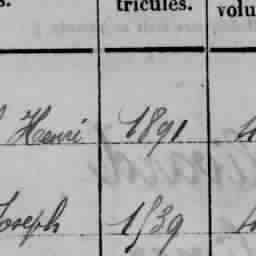 tricules. volu
Henri 1891
Joseph 1539